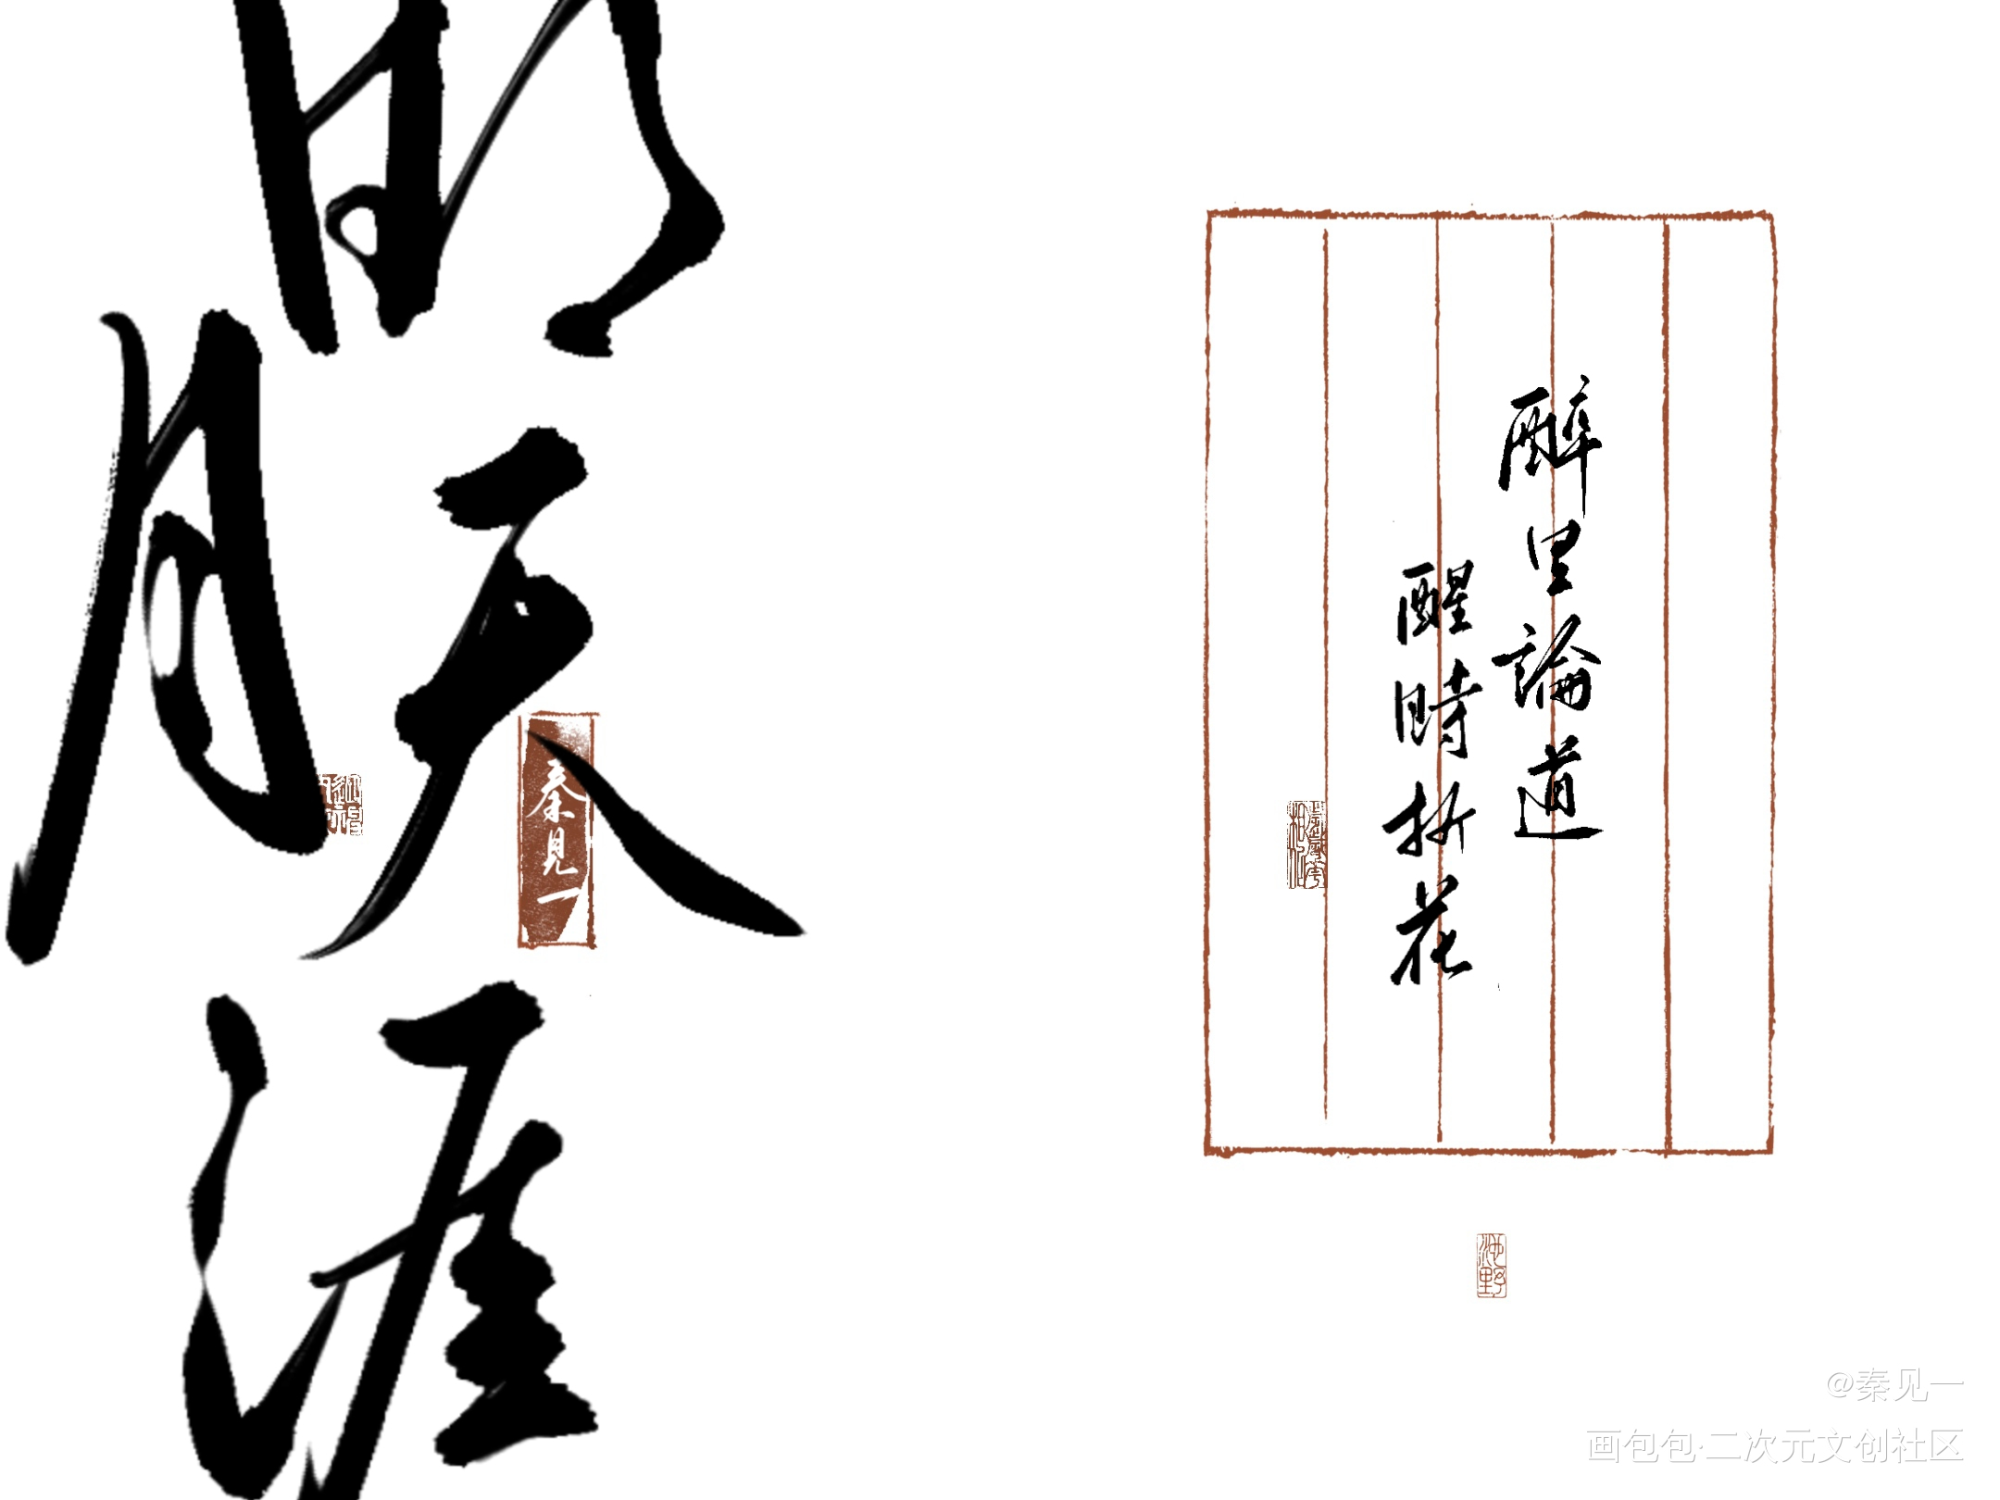 明
月
天
涯
秦見一
醉里論道
醒時折花
池野
@秦见一
画包包·二次元文创社区